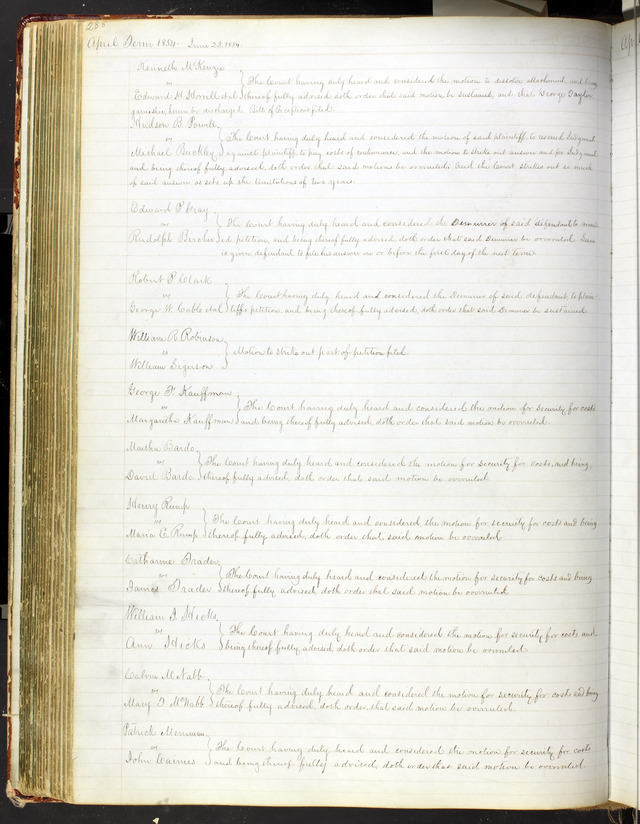 April Term 1854. June 23. 1854.
Kenneth McKenzie
vs
The Court having duly heard and considered the motion to dissolve attachment, and being
Edward H. et al thereof fully advised doth order that said motion be sustained, and that George Taylor
garnishee, herein be discharged. Bill of Exceptions filed.
Hudson B.
vs
The Court having duly heard and considered the motion of said plaintiff, to rescind Judgment
Michael Buckley against plaintiff to pay costs of continuance, and the motion to strike out answer and for Judgment
and being thereof fully advised, doth order that said motions be overruled. And the Court strikes out so much
of said answer as sets up the limitations of two years.
Edward P
vs
The Court having duly heard and considered the Demurrer of said defendant to
Rudolph Bircher ed petition, and being thereof fully advised, doth order that said Demurrer be overruled. Leave
is given defendant to file his answer on or before the first day of the next term.
Robert P. Clark
vs
The Court having duly heard and considered the Demurrer of said defendant to plain
George W. Cable et al tiffs petition, and being thereof fully advised, doth order that said Demurrer be sustained
William R Robinson
vs
Motion to strike out part of petition filed.
William Segerson
George F. Kauffman
vs
The Court having duly heard and considered the motion for security for costs
Margaretha Kauffman and being thereof fully advised, doth order that said motion be overruled.
Martha Bardo
vs
The Court having duly heard and considered the motion for security for costs, and being,
David Bardo thereof fully advised, doth order that said motion be overruled.
Henry Rump
vs
The Court having duly heard and considered, the motion for security for costs and being
Maria E. Rump thereof fully advised, doth order that said motion be overruled
Catharine Trader
vs
The Court having duly heard and considered the motion for security for costs and being
James Trader thereof fully advised, doth order that said motion be overruled
William J. Hicks
vs
The Court having duly heard and considered the motion for security for costs and
Ann Hicks being thereof fully advised, doth order that said motion be overruled
Calvin McNabb
vs
The Court having duly heard and considered the motion for security for costs and being
Mary D McNabb thereof fully advised, doth order, that said motion be overruled.
Patrick Merriman
vs
The Court having duly heard and considered the motion for security for costs
John Cairnes and being thereof fully advised, doth order that said motion be overruled